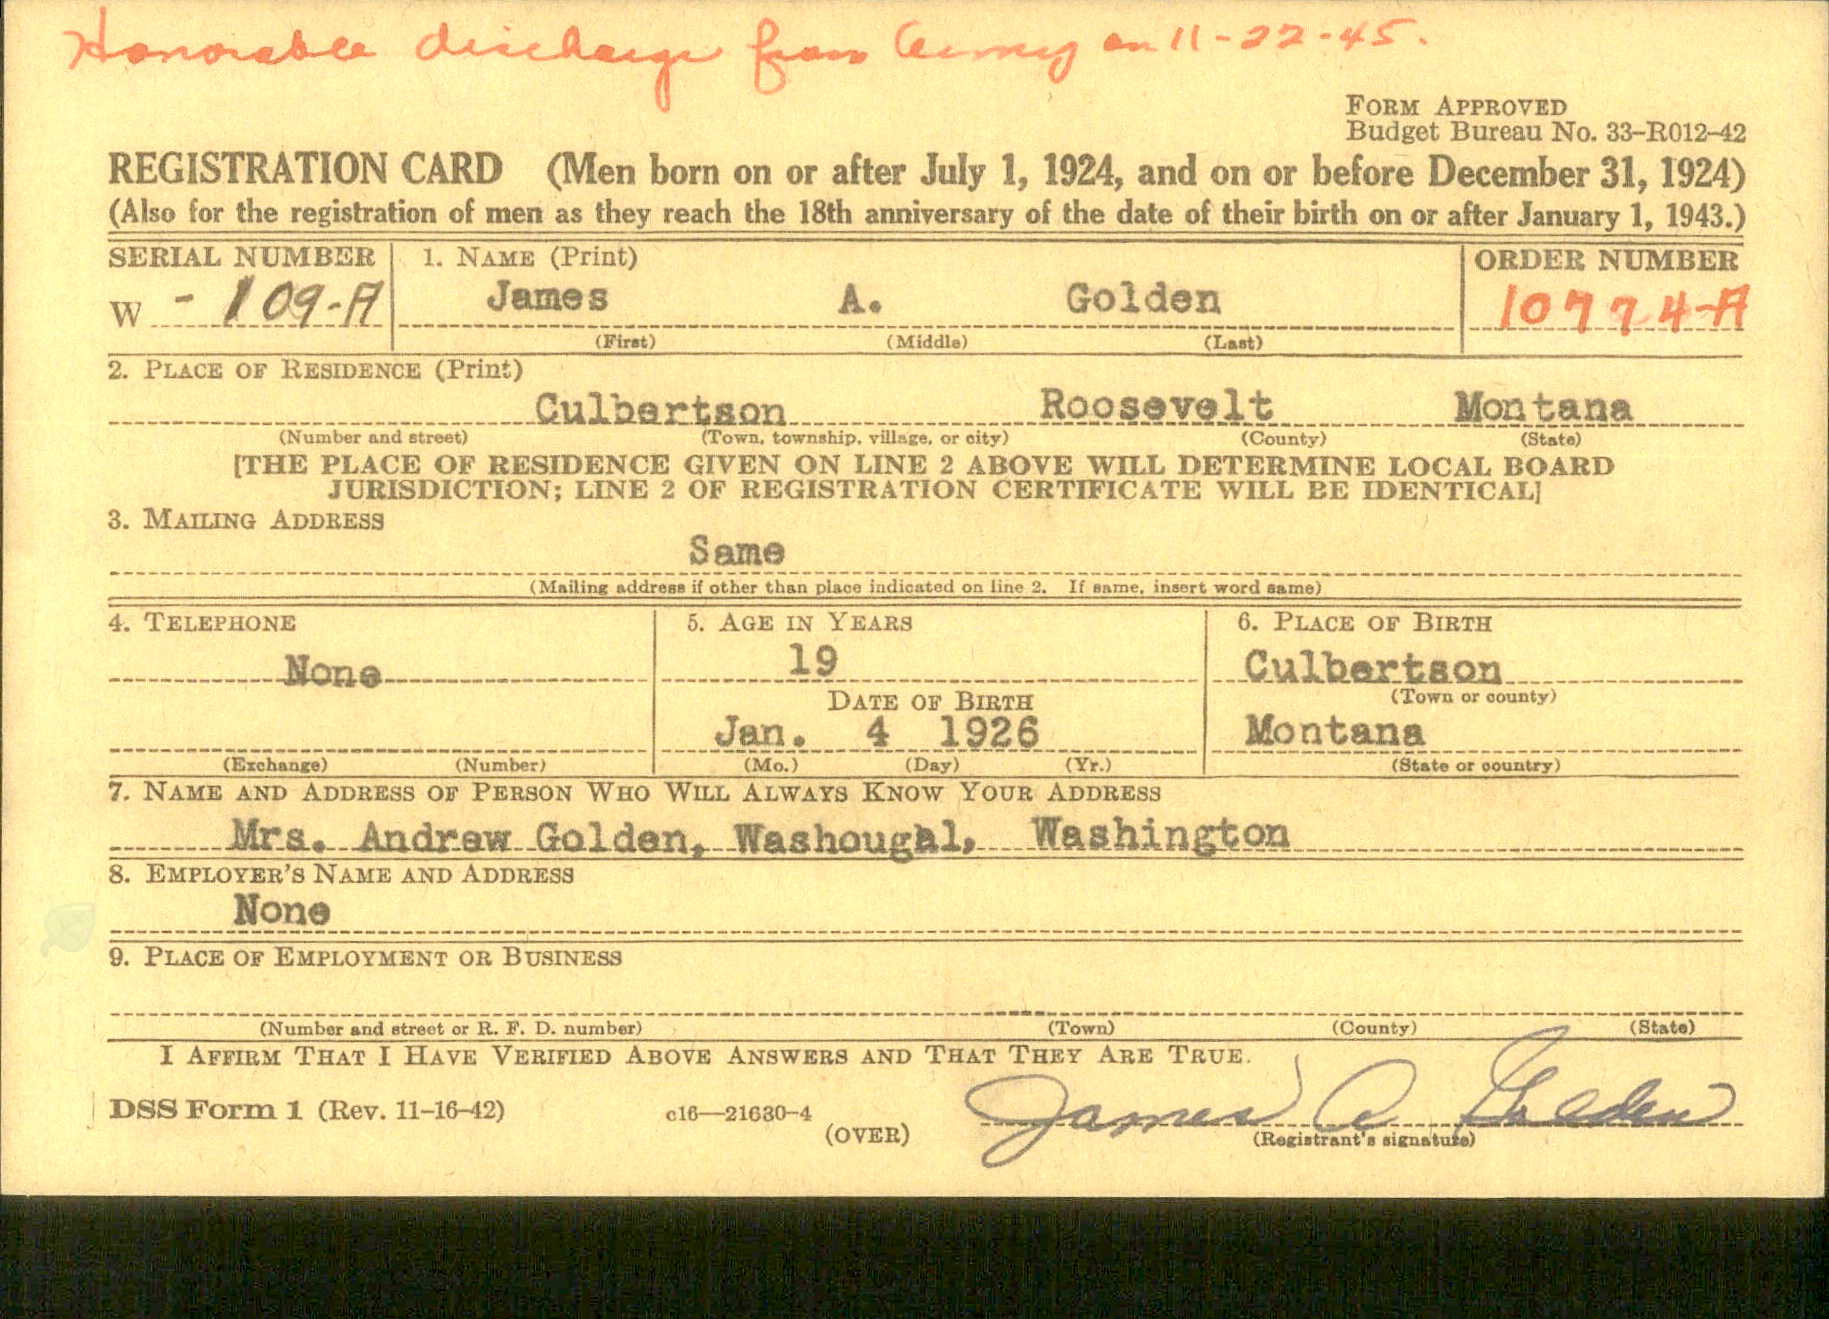 Honorable discharge from Army on 11-22-45.
FORM APPROVED
Budget Bureau No. 33-R012-42
REGISTRATION CARD (Men born on or after July 1, 1924, and on or before December 31, 1924)
(Also for the registration of men as they reach the 18th anniversary of the date of their birth on or after January 1, 1943.)
SERIAL NUMBER 1. NAME (Print) ORDER NUMBER
W - 109-A James A. Golden 10774-A
(First) (Middle) (Last)
2. PLACE OF RESIDENCE (Print)
Culbertson Roosevelt Montana
(Number and street) (Town, township, village, or city) (County) (State)
[THE PLACE OF RESIDENCE GIVEN ON LINE 2 ABOVE WILL DETERMINE LOCAL BOARD
JURISDICTION; LINE 2 OF REGISTRATION CERTIFICATE WILL BE IDENTICAL]
3. MAILING ADDRESS
Same
(Mailing address if other than place indicated on line 2. If same, insert word same)
4. TELEPHONE 5. AGE IN YEARS 6. PLACE OF BIRTH
None 19 Culbertson
DATE OF BIRTH (Town or county)
Jan. 4 1926 Montana
(Exchange) (Number) (Mo.) (Day) (Yr.) (State or country)
7. NAME AND ADDRESS OF PERSON WHO WILL ALWAYS KNOW YOUR ADDRESS
Mrs. Andrew Golden, Washougal, Washington
8. EMPLOYER'S NAME AND ADDRESS
None
9. PLACE OF EMPLOYMENT OR BUSINESS
(Number and street or R. F. D. number) (Town) (County) (State)
I AFFIRM THAT I HAVE VERIFIED ABOVE ANSWERS AND THAT THEY ARE TRUE.
DSS Form 1 (Rev. 11-16-42) c16—21630-4 James A Golden
(OVER) (Registrant's signature)